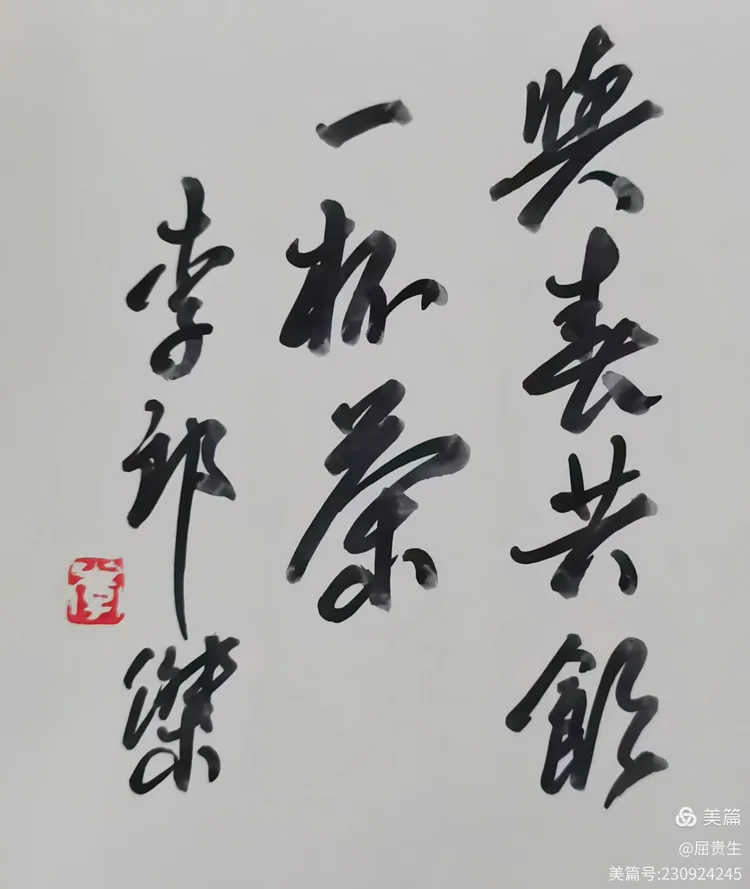 與春共飲
一杯茶
李郎傑
李
美篇
@屈贵生
美篇号:230924245